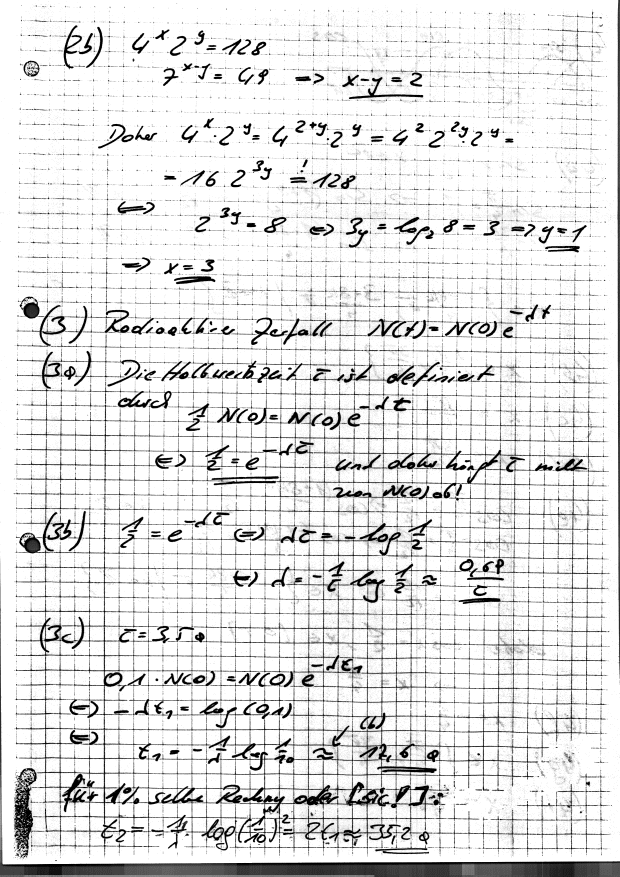 (2b) 4^x 2^y = 128
7^(x-y) = 49 => x-y = 2
Daher 4^x · 2^y = 4^(2+y) · 2^y = 4^2 2^(2y) · 2^y =
= 16 · 2^(3y) =! 128
<=>
2^(3y) = 8 <=> 3y = log₂ 8 = 3 => y = 1
=> x = 3
(3) Radioaktiver Zerfall N(t) = N(0) e^(-λt)
(3a) Die Halbwertszeit τ ist definiert
durch 1/2 N(0) = N(0) e^(-λτ)
<=> 1/2 = e^(-λτ) und daher hängt τ nicht
von N(0) ab!
(3b) 1/2 = e^(-λτ) <=> λτ = -log 1/2
<=> λ = -1/τ log 1/2 ≈ 0,69/τ
(3c) τ = 3,5 a
0,1 · N(0) = N(0) e^(-λt₁)
<=> -λt₁ = log (0,1)
<=> (b)
t₁ = -1/λ log 1/10 ≈ a
für 1% selbe Rechnung oder [sic!]:
t₂ = -1/λ · log (1/10)^2 = 2t₁ ≈ 35,2 a